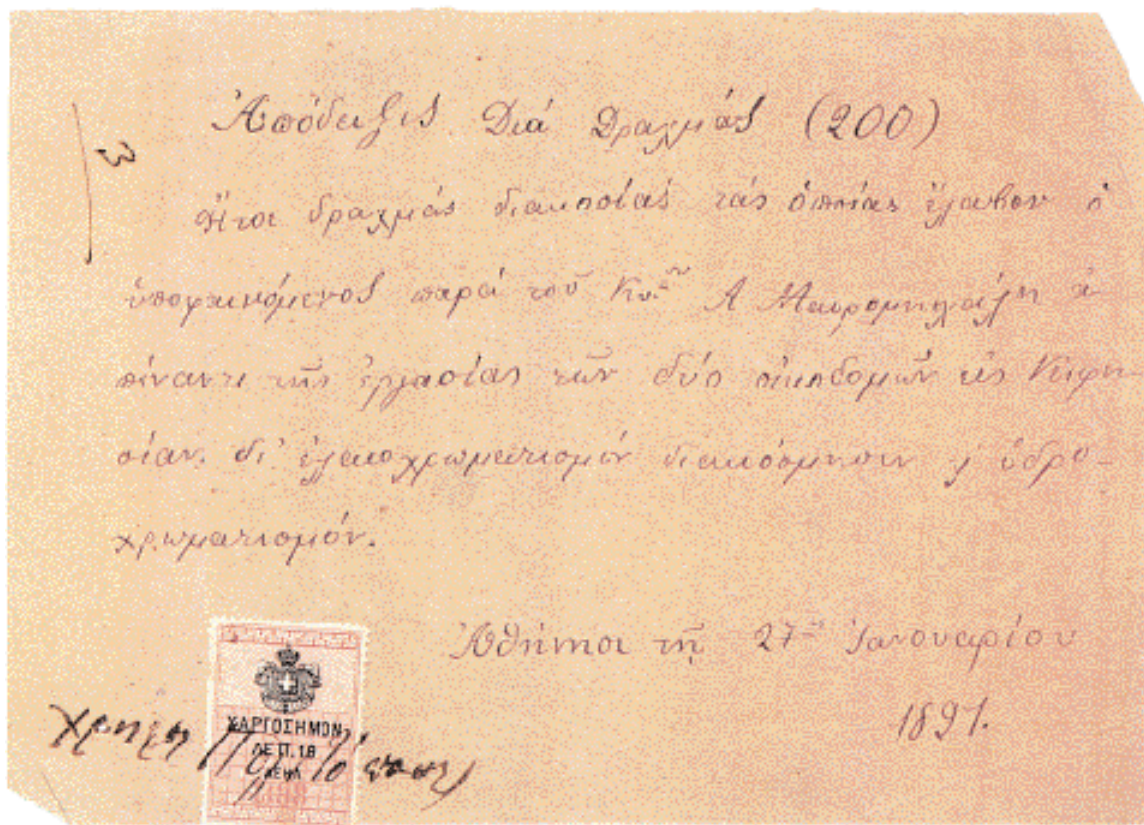 Ἀπόδειξις Διά Δραχμάς (200)
3
Ἤτοι δραχμάς διακοσίας τάς ὁποίας ἔλαβον ὁ
ὑποφαινόμενος παρά τοῦ Κυ. Α Μαυρομιχάλη ἀ-
πέναντι τῆς ἐργασίας τῶν δύο οἰκοδομῶν εἰς Κηφι-
σίαν. δι' ἐλαιοχρωματισμόν διακόσμησιν ὑδρο-
χρωματισμόν.
Ἀθήνησι τῇ 27ῃ Ἰανουαρίου
1891.
ΧΑΡΤΟΣΗΜΟΝ
ΛΕΠ. 10